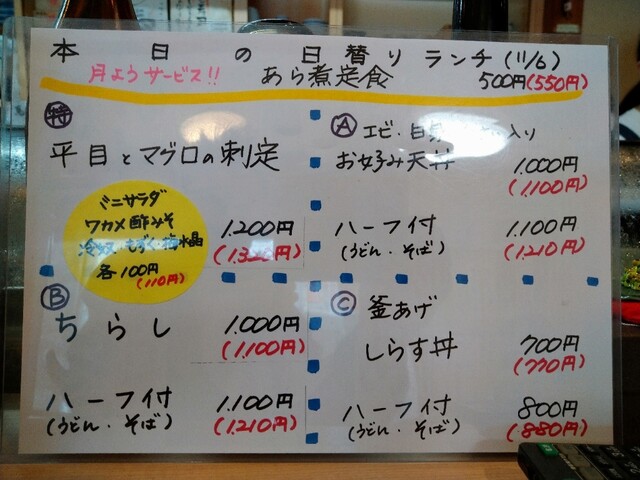 本日の日替りランチ(11/6)
月ようサービス!! あら煮定食 500円(550円)
特
平目とマグロの刺定
1.200円
(1.320円)
ミニサラダ
ワカメ酢みそ
冷奴・もずく・梅水晶
各100円
(110円)
A エビ・白身 入り
お好み天丼 1.000円
(1.100円)
ハーフ付 1.100円
(うどん・そば) (1.210円)
B
ちらし 1.000円
(1.100円)
ハーフ付 1.100円
(うどん・そば) (1.210円)
C 釜あげ
しらす丼 700円
(770円)
ハーフ付 800円
(うどん・そば) (880円)